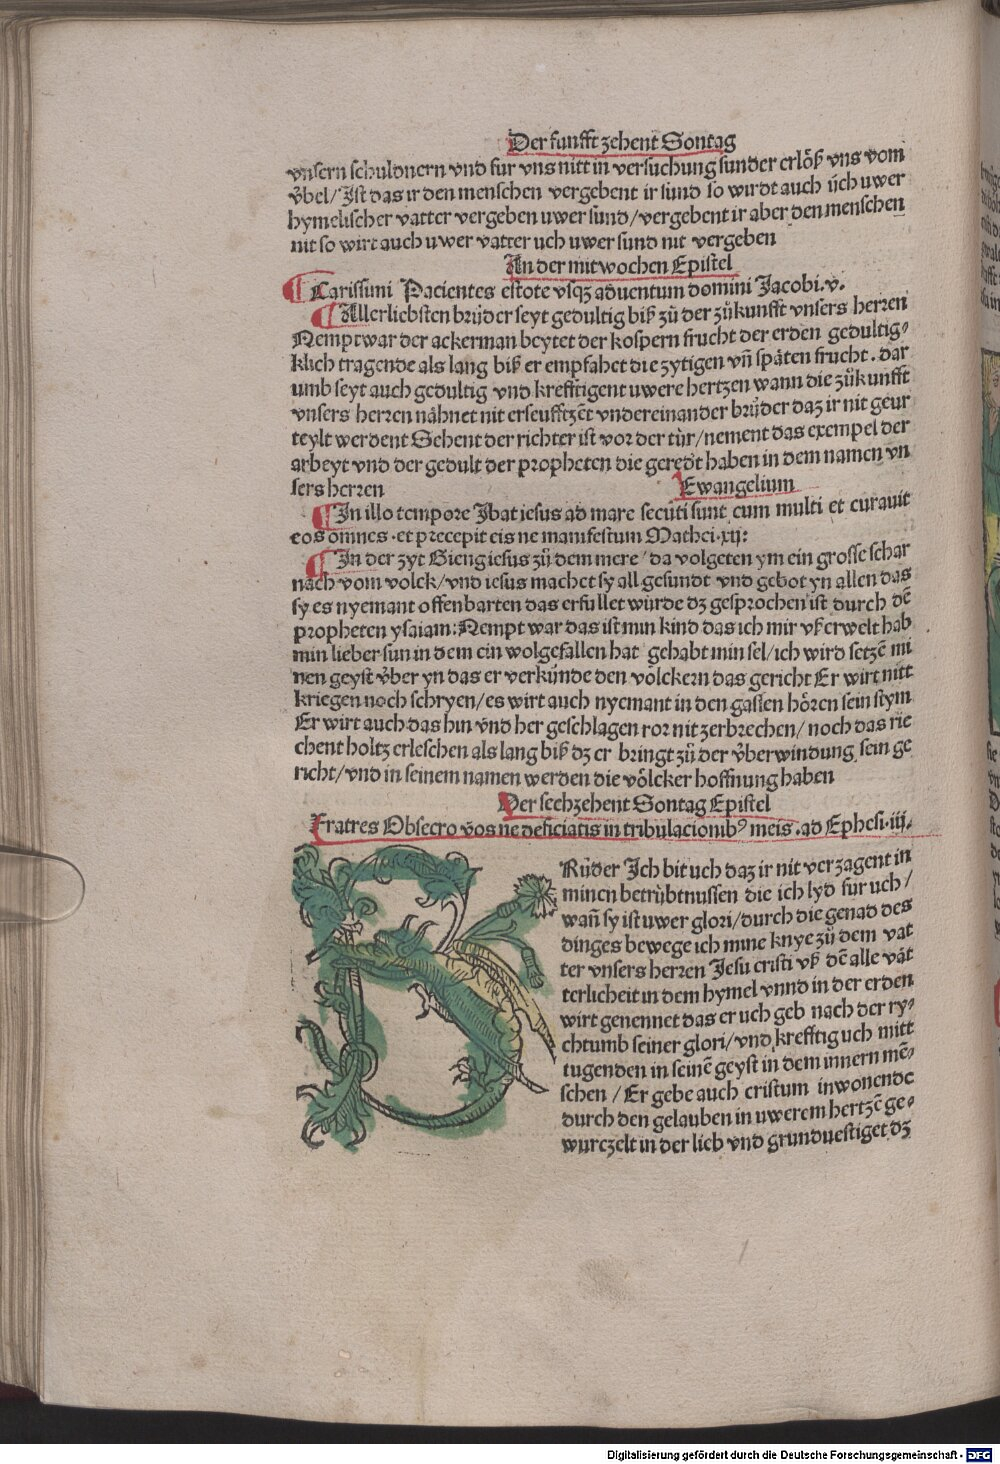 Der funfft zehent Sontag
vnsern schuldnern vnd fur vns nitt in versuchung sunder erlöß vns vom
v̈bel/ Ist das ir den menschen vergebent ir sund so wirdt auch üch uwer
hymelischer vatter vergeben uwer sund/ vergebent ir aber den menschen
nit so wirt auch uwer vatter uch uwer sund nit vergeben
An der mitwochen Epistel
Carissimi Pacientes estote vsqꝫ aduentum domini Jacobi. v.
Allerliebsten brüder seyt gedultig biß zů der zůkunfft vnsers herren
Nempt war der ackerman beytet der kospern frucht der erden gedultig⸗
klich tragende als lang biß er empfahet die zytigen vn̄ späten frucht. dar
umb seyt auch gedultig vnd krefftigent uwere hertzen wann die zůkunfft
vnsers herren nähnet nit erseufftzēt vndereinander brüder daz ir nit geur
teylt werdent Sehent der richter ist vor der tür/ nement das exempel der
arbeyt vnd der gedult der propheten die geredt haben in dem namen vn
sers herren
Ewangelium
In illo tempore Ibat iesus ad mare secuti sunt eum multi et curauit
eos omnes. et precepit eis ne manifestum Mathei. xij:
In der zyt Gieng iesus zů dem mere/ da volgeten ym ein grosse schar
nach vom volck/ vnd iesus machet sy all gesundt vnd gebot yn allen das
sy es nyemant offenbarten das erfullet würde dꝫ gesprochen ist durch dē
propheten ysaiam: Nempt war das ist min kind das ich mir vß erwelt hab
min lieber sun in dem ein wolgefallen hat gehabt min sel/ ich wird setzē mi
nen geyst v̈ber yn das er verkünde den völckern das gericht Er wirt nitt
kriegen noch schryen/ es wirt auch nyemant in den gassen hören sein stym
Er wirt auch das hin vnd her geschlagen ror nit zerbrechen/ noch das rie
chent holtz erleschen als lang biß dꝫ er bringt zů der v̈berwindung sein ge
richt/ vnd in seinem namen werden die völcker hoffnung haben
Der sechzehent Sontag Epistel
Fratres Obsecro vos ne deficiatis in tribulacionibꝰ meis. ad Ephesi. iij.
BRüder Ich bit uch daz ir nit verzagent in
minen betrübtnussen die ich lyd fur uch/
wan̄ sy ist uwer glori/ durch die genad des
dinges bewege ich mine knye zů dem vat
ter vnsers herren Jesu cristi vß dē alle vät
terlicheit in dem hymel vnnd in der erden
wirt genennet das er uch geb nach der ry⸗
chtumb seiner glori/ vnd krefftig uch mitt
tugenden in seinē geyst in dem innern mē⸗
schen/ Er gebe auch cristum inwonende
durch den gelauben in uwerem hertzē ge⸗
wurczelt in der lieb vnd grunduestiget dꝫ
Digitalisierung gefördert durch die Deutsche Forschungsgemeinschaft - DFG